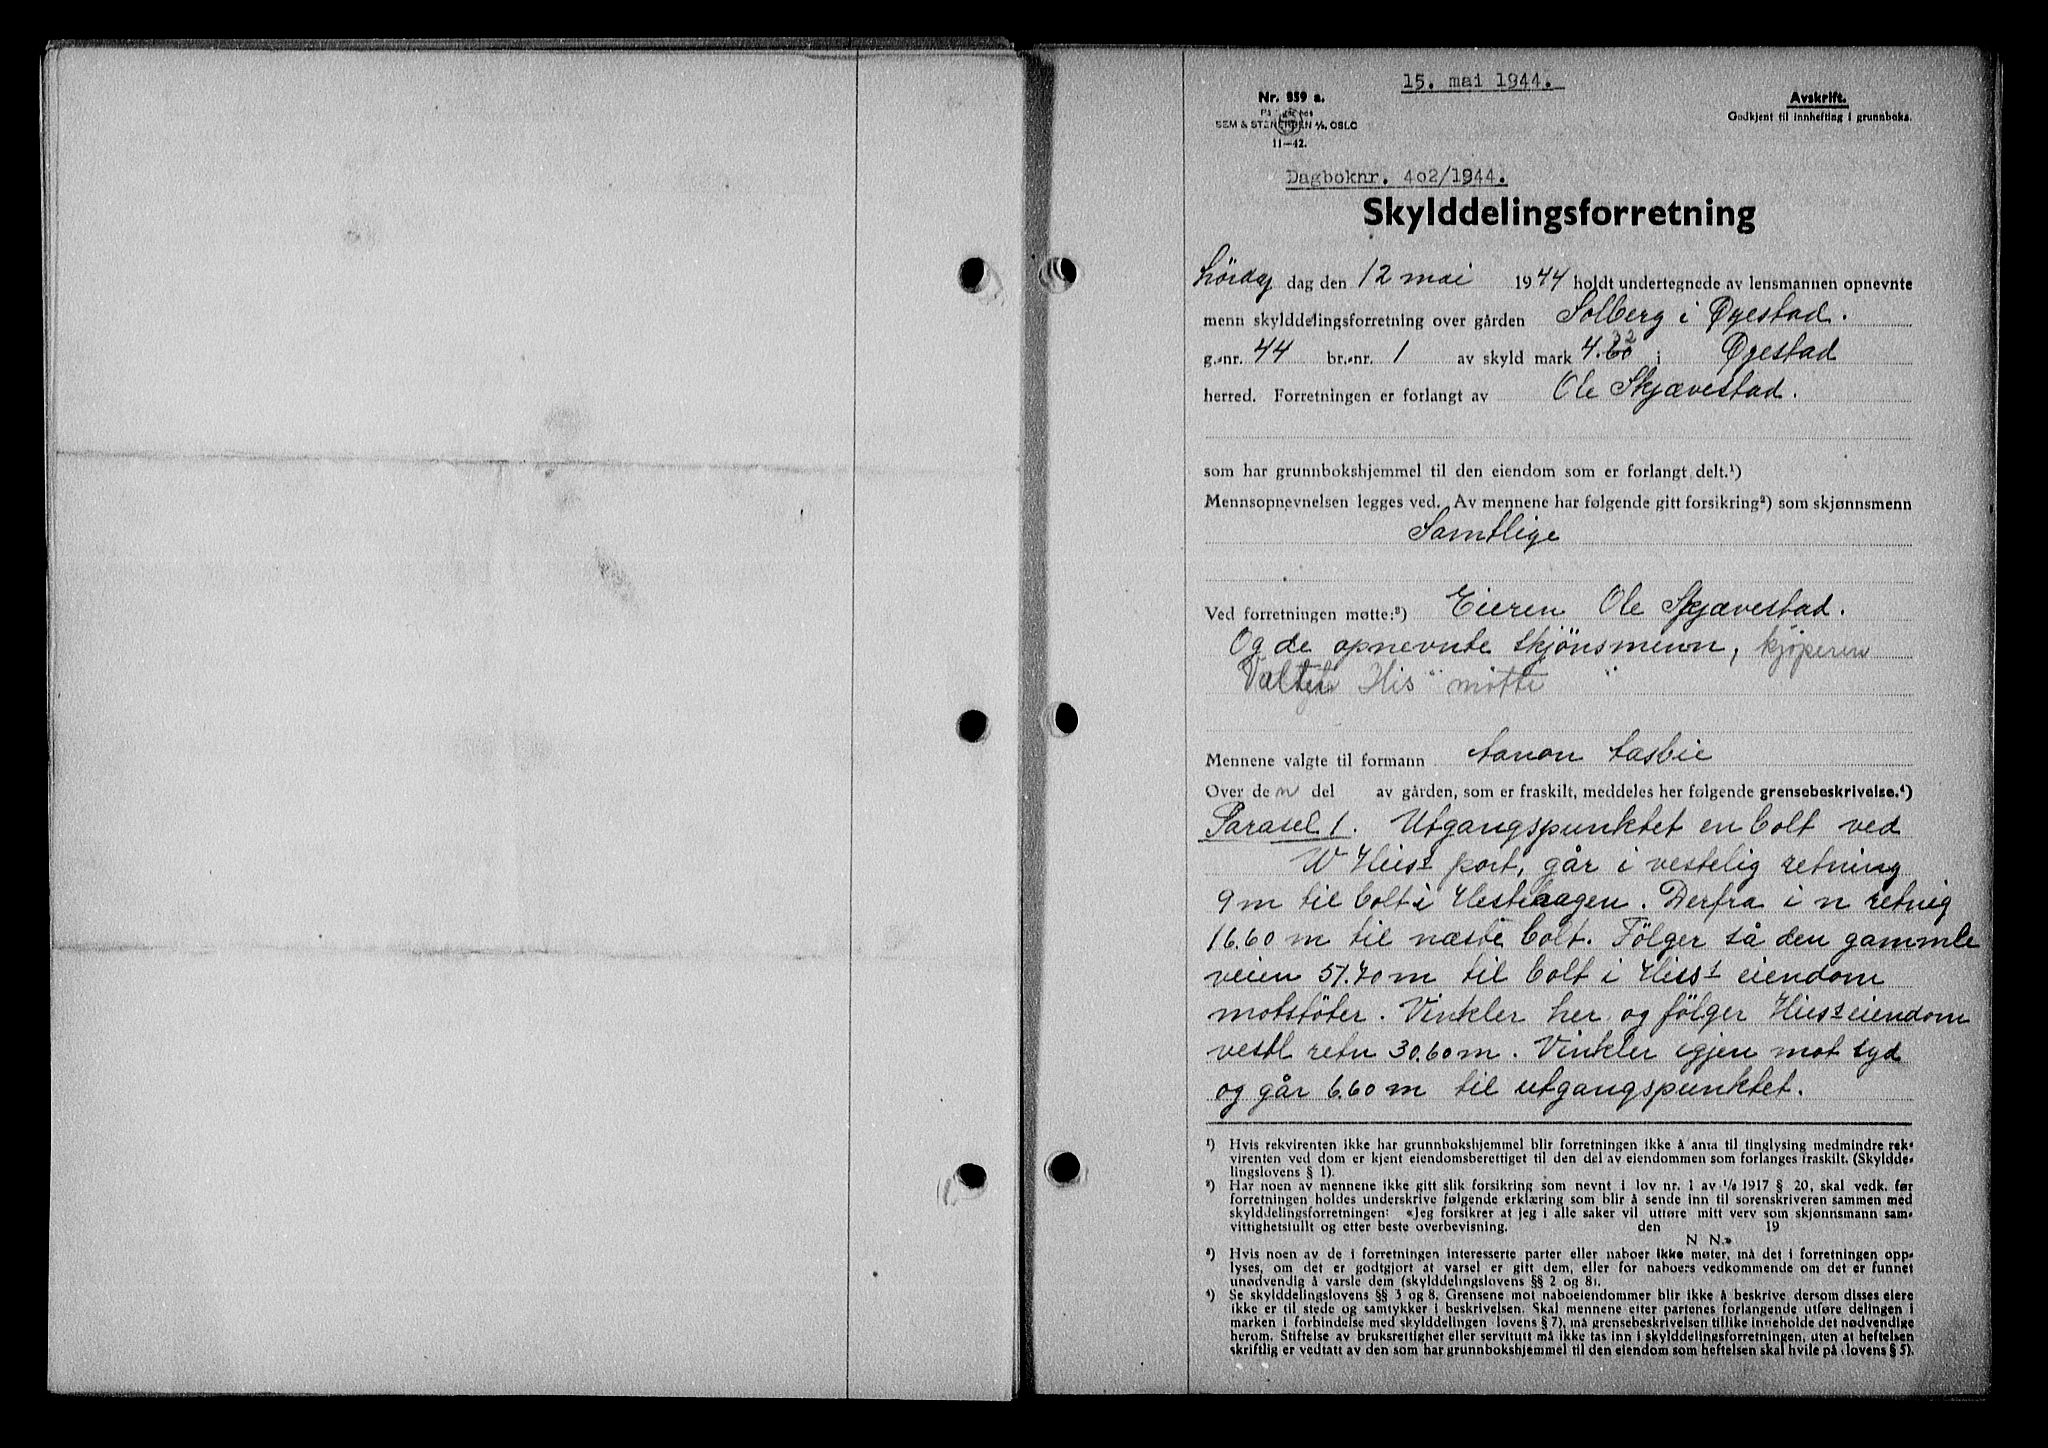 15. mai 1944.
Nr. 859 a.
SEM & STENERSEN A/S, OSLO
11—42.
Avskrift.
Godkjent til innhefting i grunnboka.
Dagboknr. 402/1944.
Skylddelingsforretning
Lördag dag den 12 mai 1944 holdt undertegnede av lensmannen opnevnte
menn skylddelingsforretning over gården Solberg i Øyestad.
g.-nr. 44 br.-nr. 1 av skyld mark 4.32 i Øyestad
herred. Forretningen er forlangt av Ole Skjævestad.
som har grunnbokshjemmel til den eiendom som er forlangt delt.¹)
Mennsopnevnelsen legges ved. Av mennene har følgende gitt forsikring²) som skjønnsmenn
Samtlige
Ved forretningen møtte:³) Eieren Ole Skjævestad.
Og de opnevnte skjönsmenn, kjøperen
His møtte
Mennene valgte til formann Aanon
Over den del av gården, som er fraskilt, meddeles her følgende grensebeskrivelse.⁴)
Parasel 1. Utgangspunktet en bolt ved
W Hiis' port, går i vestelig retning
9 m til bolt i Hestehagen. Derfra i n retnig
16.60 m til næste bolt. Fölger så den gammle
veien 51.70 m til bolt i Hiss' eiendom
motstöter. Vinkler her og fölger Hiis's eiendom
vestl retn 30.60 m. Vinkler igjen mot syd
og går 6.60 m til utgangspunktet.
¹) Hvis rekvirenten ikke har grunnbokshjemmel blir forretningen ikke å anta til tinglysing medmindre rek-
virenten ved dom er kjent eiendomsberettiget til den del av eiendommen som forlanges fraskilt. (Skyldde-
lingslovens § 1).
²) Har noen av mennene ikke gitt slik forsikring som nevnt i lov nr. 1 av 1/6 1917 § 20, skal vedk. før
forretningen holdes underskrive følgende erklæring som blir å sende inn til sorenskriveren sammen med
skylddelingsforretningen: «Jeg forsikrer at jeg i alle saker vil utføre mitt verv som skjønnsmann sam-
vittighetsfullt og etter beste overbevisning. den 19
N. N.»
³) Hvis noen av de i forretningen interesserte parter eller naboer ikke møter, må det i forretningen opp-
lyses, om det er godtgjort at varsel er gitt dem, eller for naboers vedkommende om det er funnet
unødvendig å varsle dem (skylddelingslovens §§ 2 og 8).
⁴) Se skylddelingslovens §§ 3 og 8. Grensene mot naboeiendommer blir ikke å beskrive dersom disses eiere
ikke er til stede og samtykker i beskrivelsen. Skal mennene etter partenes forlangende utføre delingen i
marken i forbindelse med skylddelingen (lovens § 7), må grensebeskrivelsen tillike inneholde det nødvendige
herom. Stiftelse av bruksrettighet eller servitutt må ikke tas inn i skylddelingsforretningen, uten at heftelsen
skriftlig er vedtatt av den som har grunnbokshjemmel til den eiendom som heftelsen skal hvile på (lovens § 5).